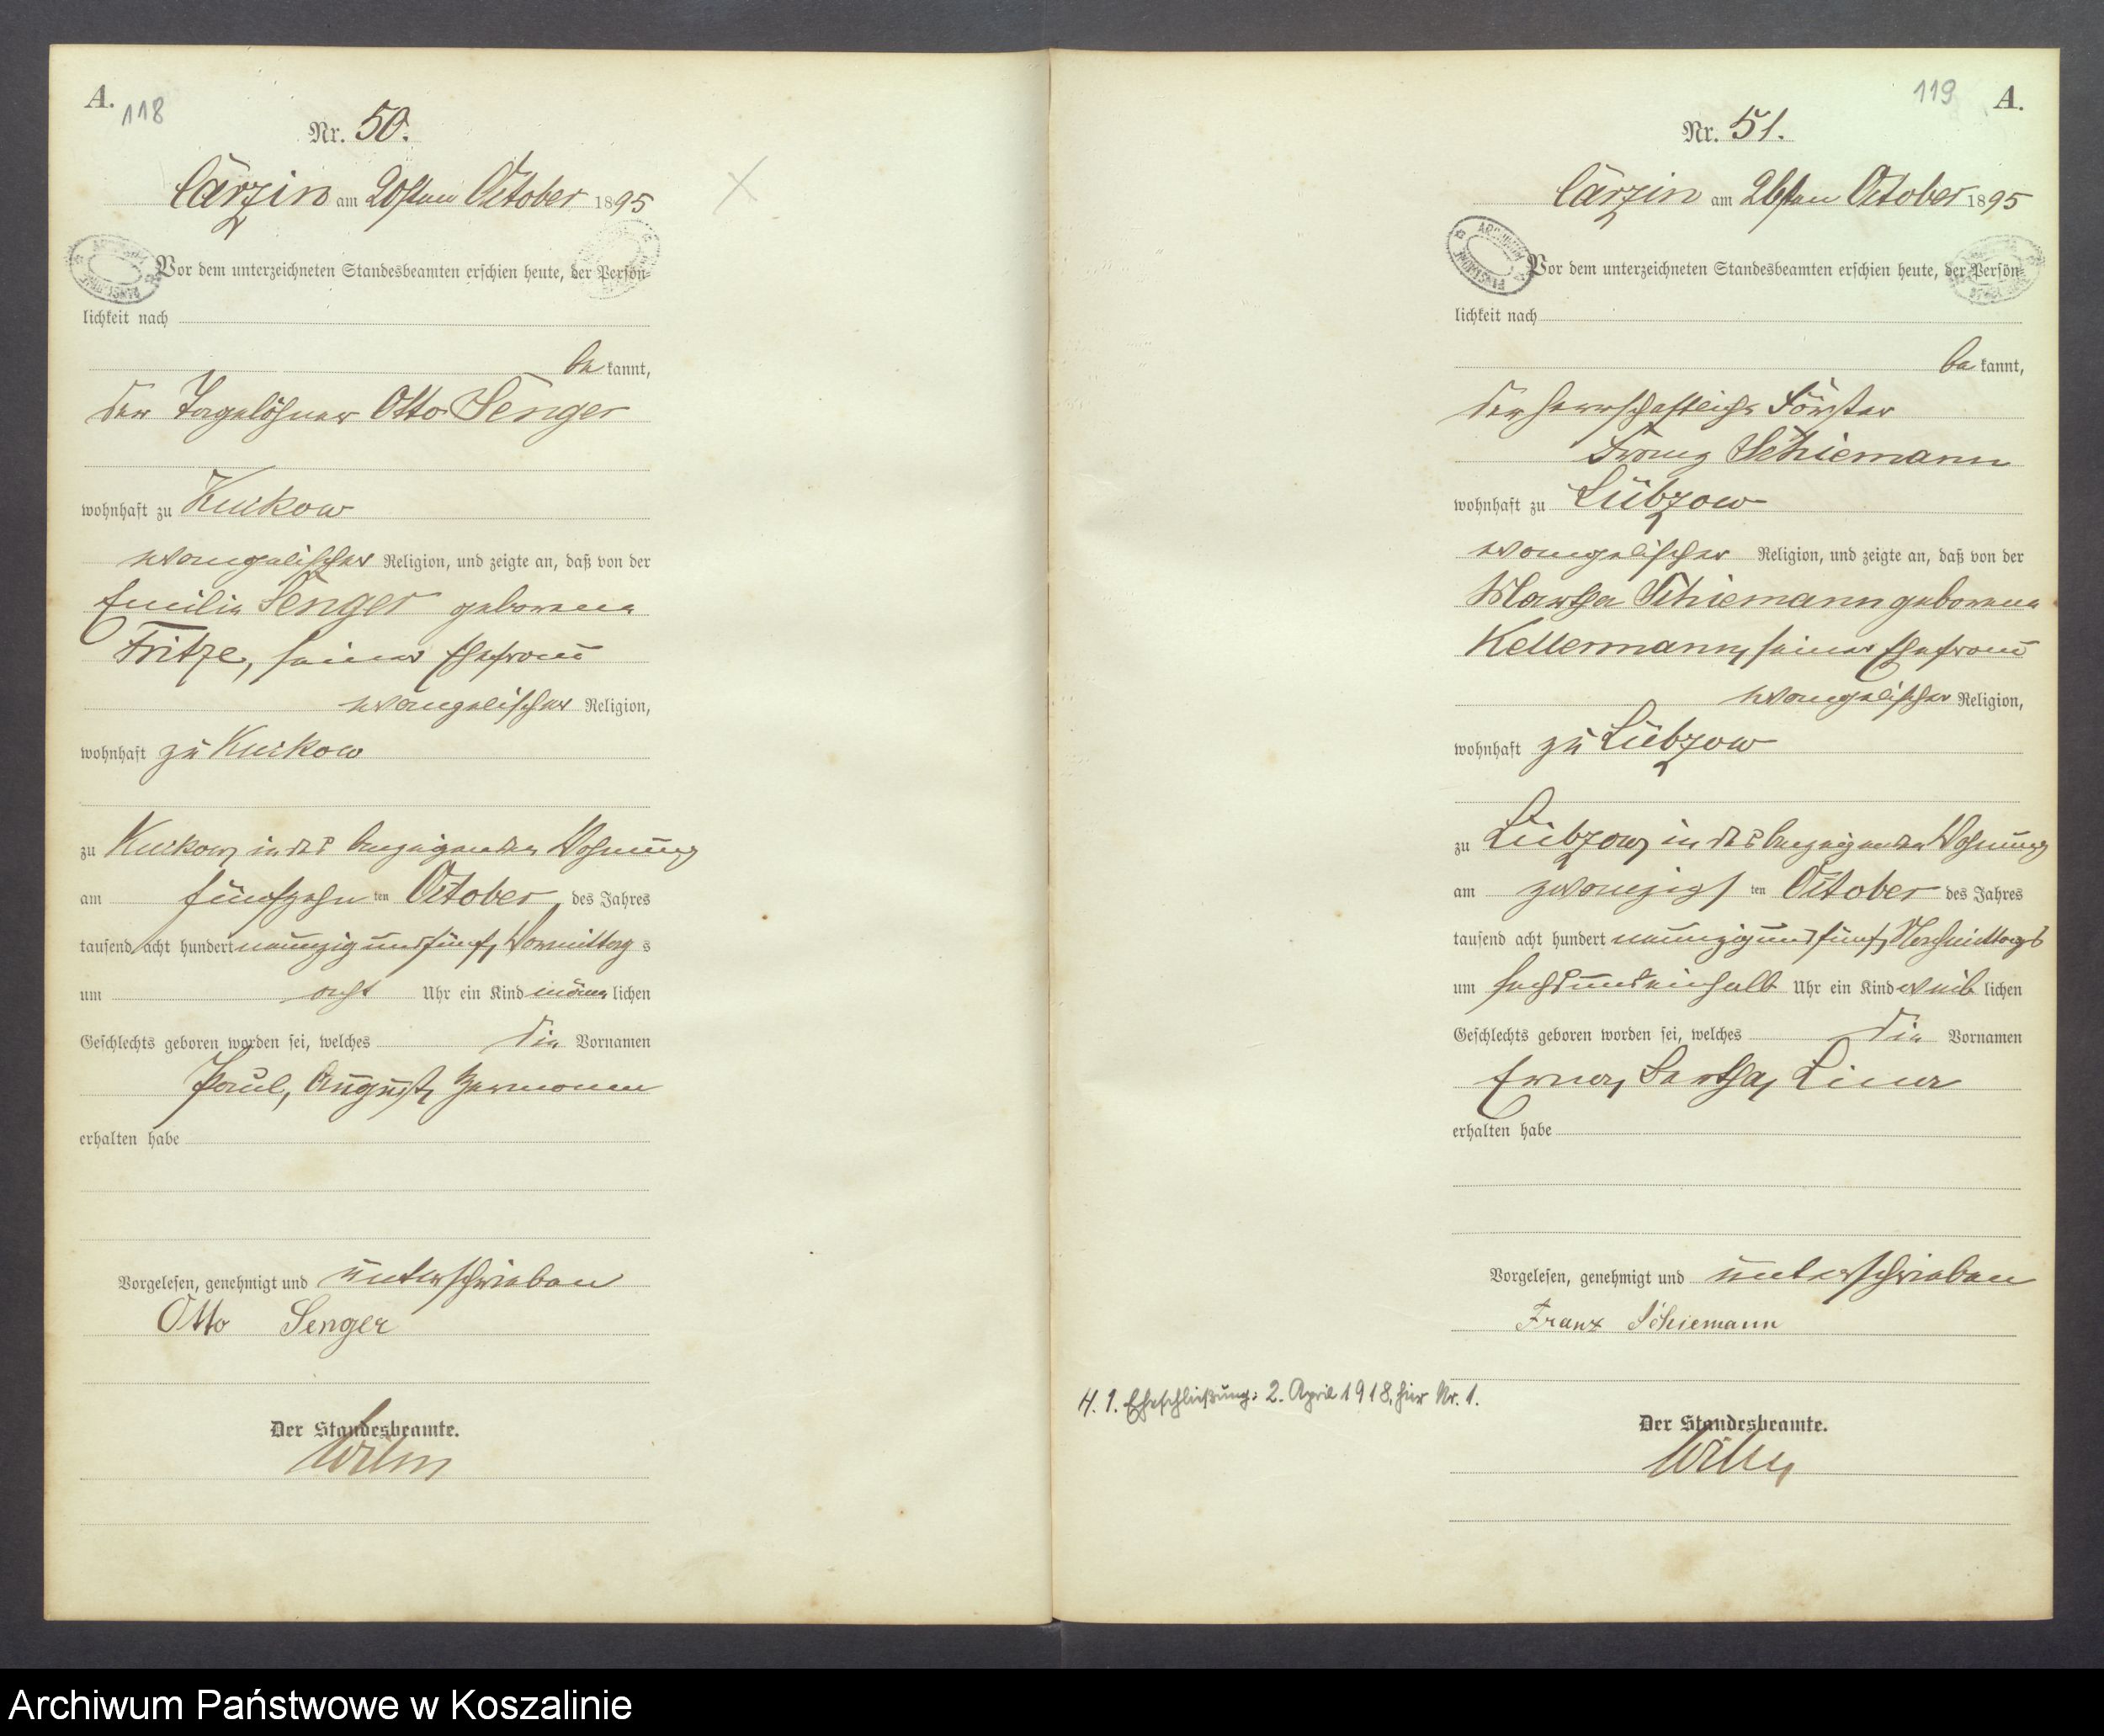 A.
118
Nr. 50.
Carzin am 20sten October 1895
Vor dem unterzeichneten Standesbeamten erschien heute, der Persön-
lichkeit nach
be kannt,
der Tagelöhner Otto Senger
wohnhaft zu Kuckow
evangelischer Religion, und zeigte an, daß von der
Emilie Senger geborene
Fritze, seiner Ehefrau
evangelischer Religion,
wohnhaft zu Kuckow
zu Kuckow, in des Anzeigenden Wohnung
am fünfzehn ten October des Jahres
tausend acht hundert neunzig und fünf, Vormittag s
um acht Uhr ein Kind männ lichen
Geschlechts geboren worden sei, welches die Vornamen
Paul, August, Hermann
erhalten habe
Vorgelesen, genehmigt und unterschrieben
Otto Senger
Der Standesbeamte.
Wilm
119
A.
Nr. 51.
Carzin am 26sten October 1895
Vor dem unterzeichneten Standesbeamten erschien heute, der Persön-
lichkeit nach
be kannt,
der herrschaftliche Förster
Franz Schiemann
wohnhaft zu Lübzow
evangelischer Religion, und zeigte an, daß von der
Martha Schiemann geborene
Kellermann, seiner Ehefrau
evangelischer Religion,
wohnhaft zu Lübzow
zu Lübzow, in des Anzeigenden Wohnung
am zwanzigs ten October des Jahres
tausend acht hundert neunzig und fünf, Nachmittags
um sechs und einhalb Uhr ein Kind weib lichen
Geschlechts geboren worden sei, welches die Vornamen
Erna, Bertha, Lina
erhalten habe
Vorgelesen, genehmigt und unterschrieben
Franz Schiemann
H. 1. Eheschließung: 2. April 1918, hier Nr. 1.
Der Standesbeamte.
Wilm
Archiwum Państwowe w Koszalinie